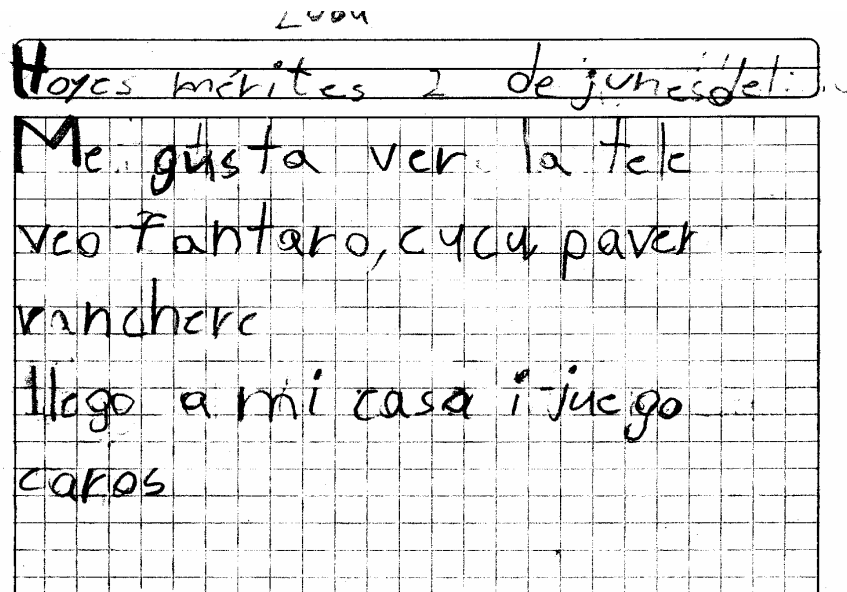 Hoyes mérites 2 de junesdel
Me gusta ver la tele
veo Fantaro, cucu paver
ranchere
llego a mi casa i juego
caros